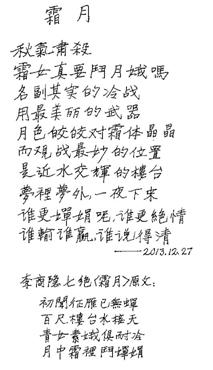 霜月
秋氣肅殺
霜女真要鬥月娥嗎
名副其实的冷战
用最美丽的武器
月色皎皎对霜体晶晶
而观战最妙的位置
是近水交輝的樓台
夢裡夢外,一夜下來
谁更嬋娟呢,谁更绝情
谁輸谁赢,谁说得清
——2013.12.27
李商隐七绝《霜月》原文:
初聞征雁已無蟬
百尺樓台水接天
青女素娥俱耐冷
月中霜裡鬥嬋娟